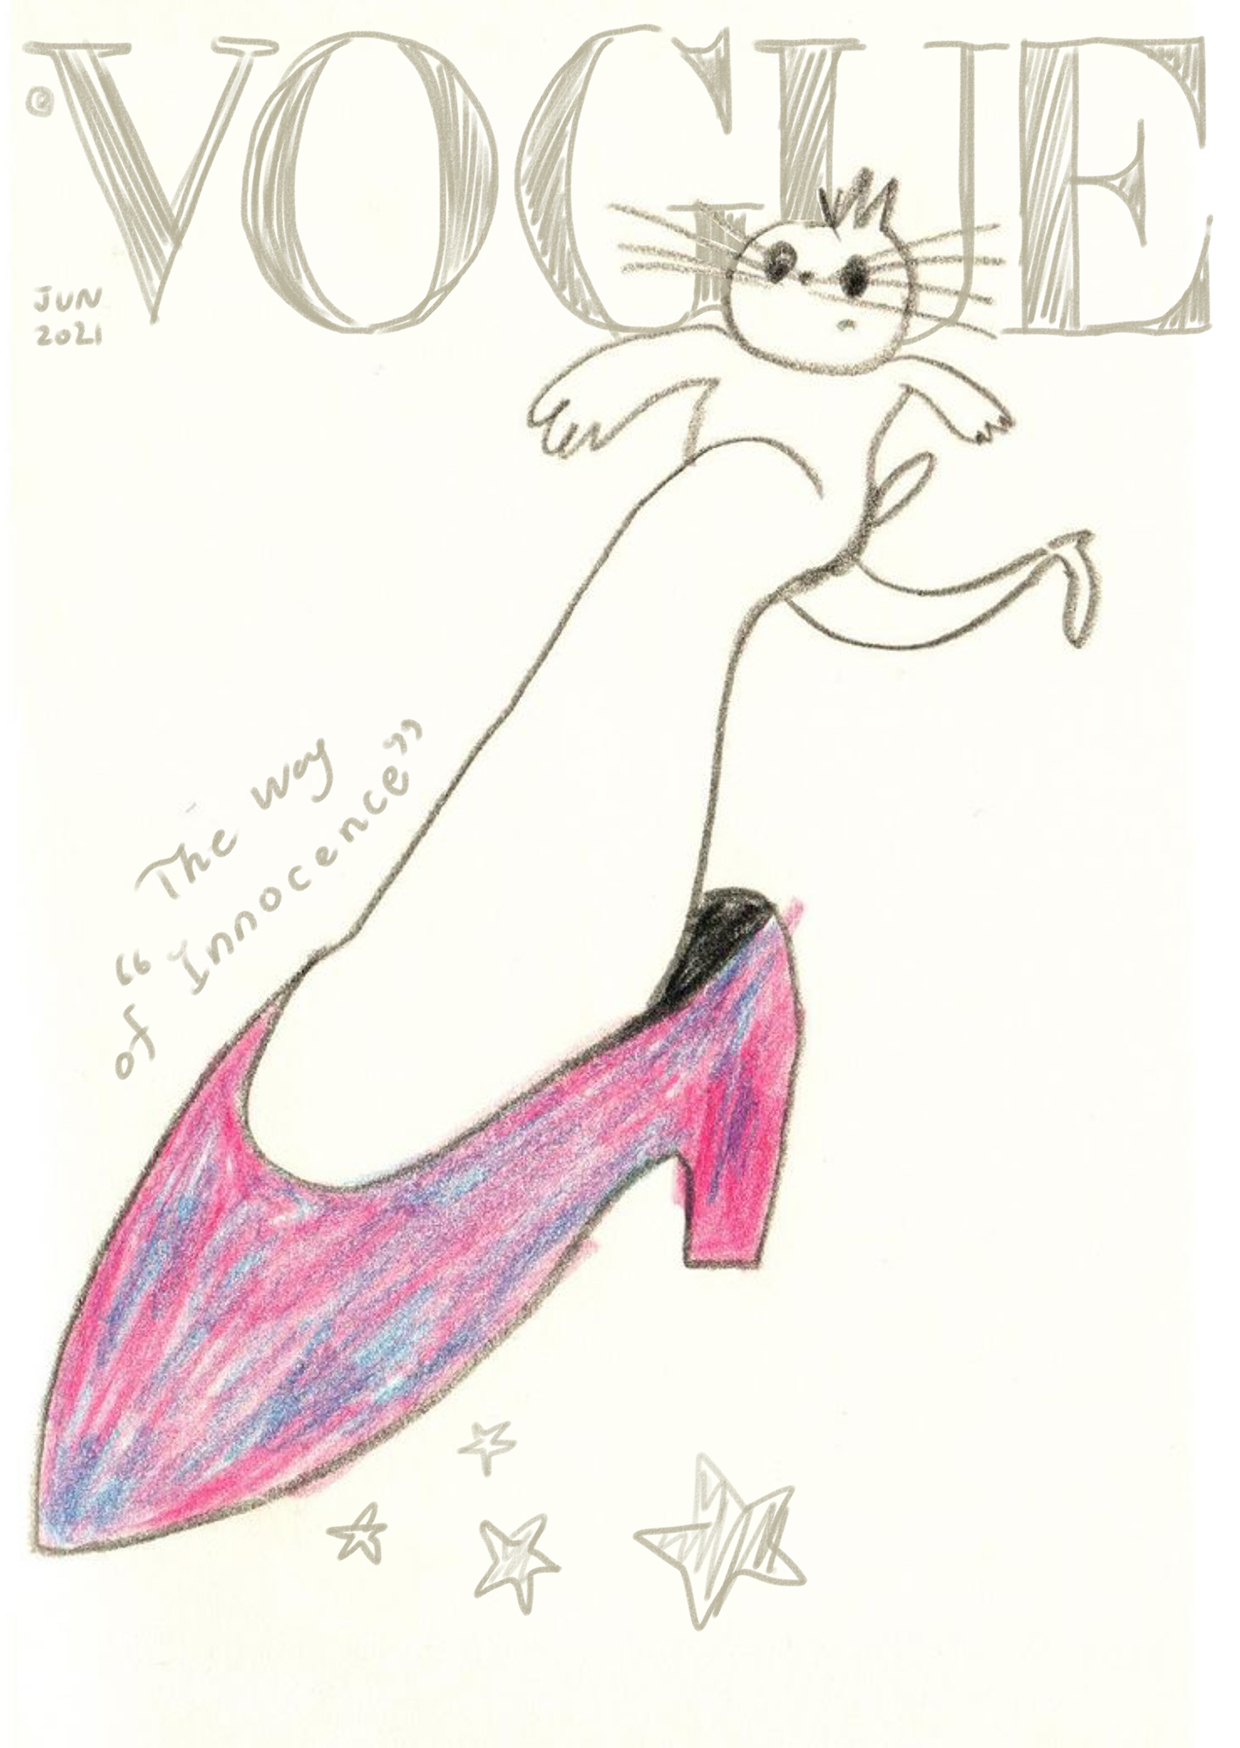 VOGUE
@
JUN
2021
The way
“Innocence”
of